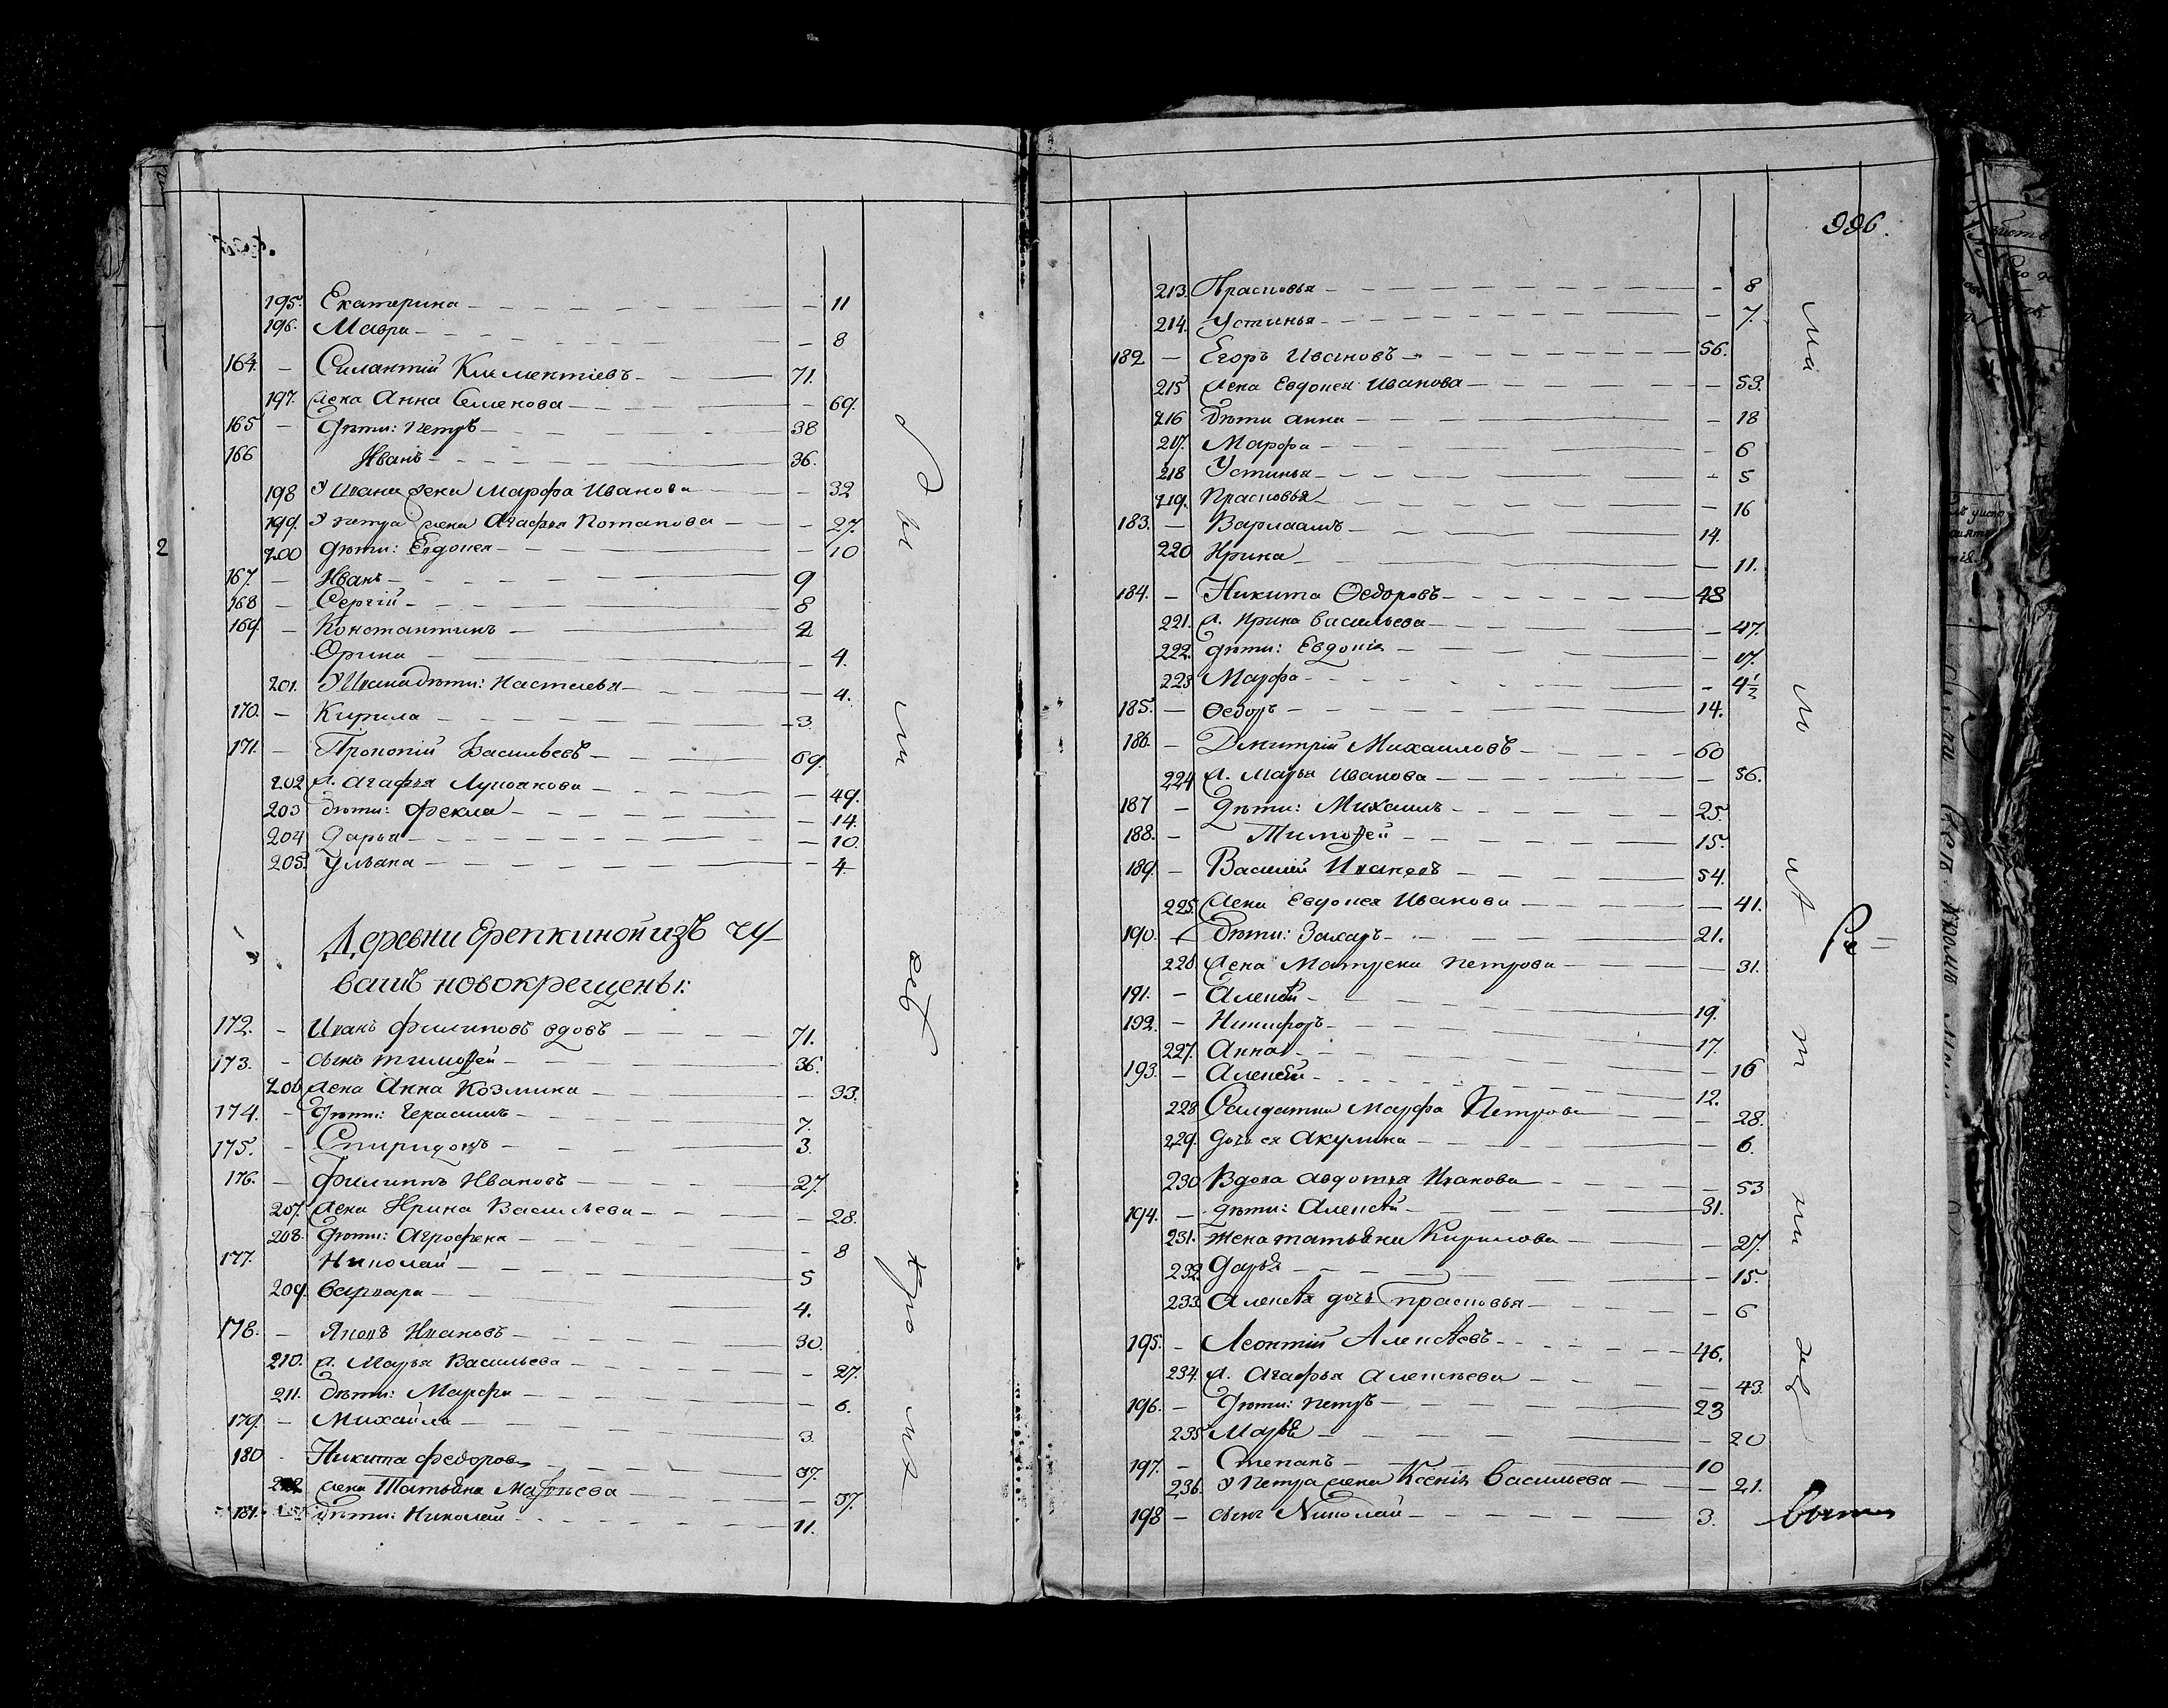 195. Екатерина 11
196. Мавра 8
164. Силантий Климентіевъ 71.
197. жена Анна Семенова 69.
165 Дѣти: Петръ 38
166 Иванъ 36.
198 У Ивана жена Марфа Иванова 32
199. У Петра жена Агафья Потапова 27.
200 Дѣти: Евдокея 10
167. Иванъ 9
168 Сергій 8
169. Константинъ 2
Орина 4.
201. У Ивана дѣти: Настасья 4.
170. Кирила 3
171. Прокопій Васильевъ 69.
202 ж. Агафья Лукоянова 49.
203 дѣти: Фекла 14.
204 Дарья 10.
205. Ульяна 4
Деревни Ерепкиной изъ чу-
вашъ новокрещены:
172. Иванъ Филиповъ вдовъ 71.
173. сынъ Тимофей 36.
206 жена Анна Козмина 33.
174. Дѣти: Герасимъ 7.
175. Спиридонъ 3.
176. Филиппъ Ивановъ 27.
207. жена Ирина Васильева 28.
208. Дѣти: Агрофена 8
177. Николай 5
209. Варвара 4.
178. Яковъ Ивановъ 30.
210. ж. Марья Васильева 27.
211. Дѣти: Марфа 6.
179. Михайла 3.
180 Никита Федоровъ 37.
212 жена Татьяна Матвѣева 37.
181. Дѣти: Николай 11.
996.
213. Прасковья 8
214. Устинья 7.
182 Егоръ Ивановъ 56.
215 жена Евдокея Иванова 53.
216 дѣти Анна 18
217. Марфа 6
218 Устинья 5
219. Прасковья 16
183. Варлаамъ 14.
220 Ирина 11.
184. Никита Ѳедоровъ 48
221. ж. Ирина Васильева 47.
222. дѣти: Евдокія 17.
223 Марфа 4½
185. Ѳедоръ 14.
186. Дмитрій Михаиловъ 60
224 ж. Марья Иванова 56.
187 Дѣти: Михаилъ 25.
188. Тимофей 15.
189. Василій Ивановъ 54.
225. жена Евдокея Иванова 41.
190. Дѣти: Захаръ 21.
226. жена Матрена Петрова 31.
191. Алексѣй 19.
192. Никифоръ 17.
227. Анна 16
193. Алексѣй 12.
228 Салдатка Марфа Петрова 28.
229. Дочь ея Акулина 6.
230 Вдова Авдотья Иванова 53
194. Дѣти: Алексѣй 31.
231. Жена Татьяна Кирилова 27.
232. Дарья 15.
233. Алексѣя дочь Прасковья 6
195. Леонтій Алексѣевъ 46.
234. ж. Агафья Алексѣева 43.
196. Дѣти: Петръ 23
235 Марья 20
197. Степанъ 10
236. У Петра жена Ксенія Васильева 21.
198 сынъ Николай 3.